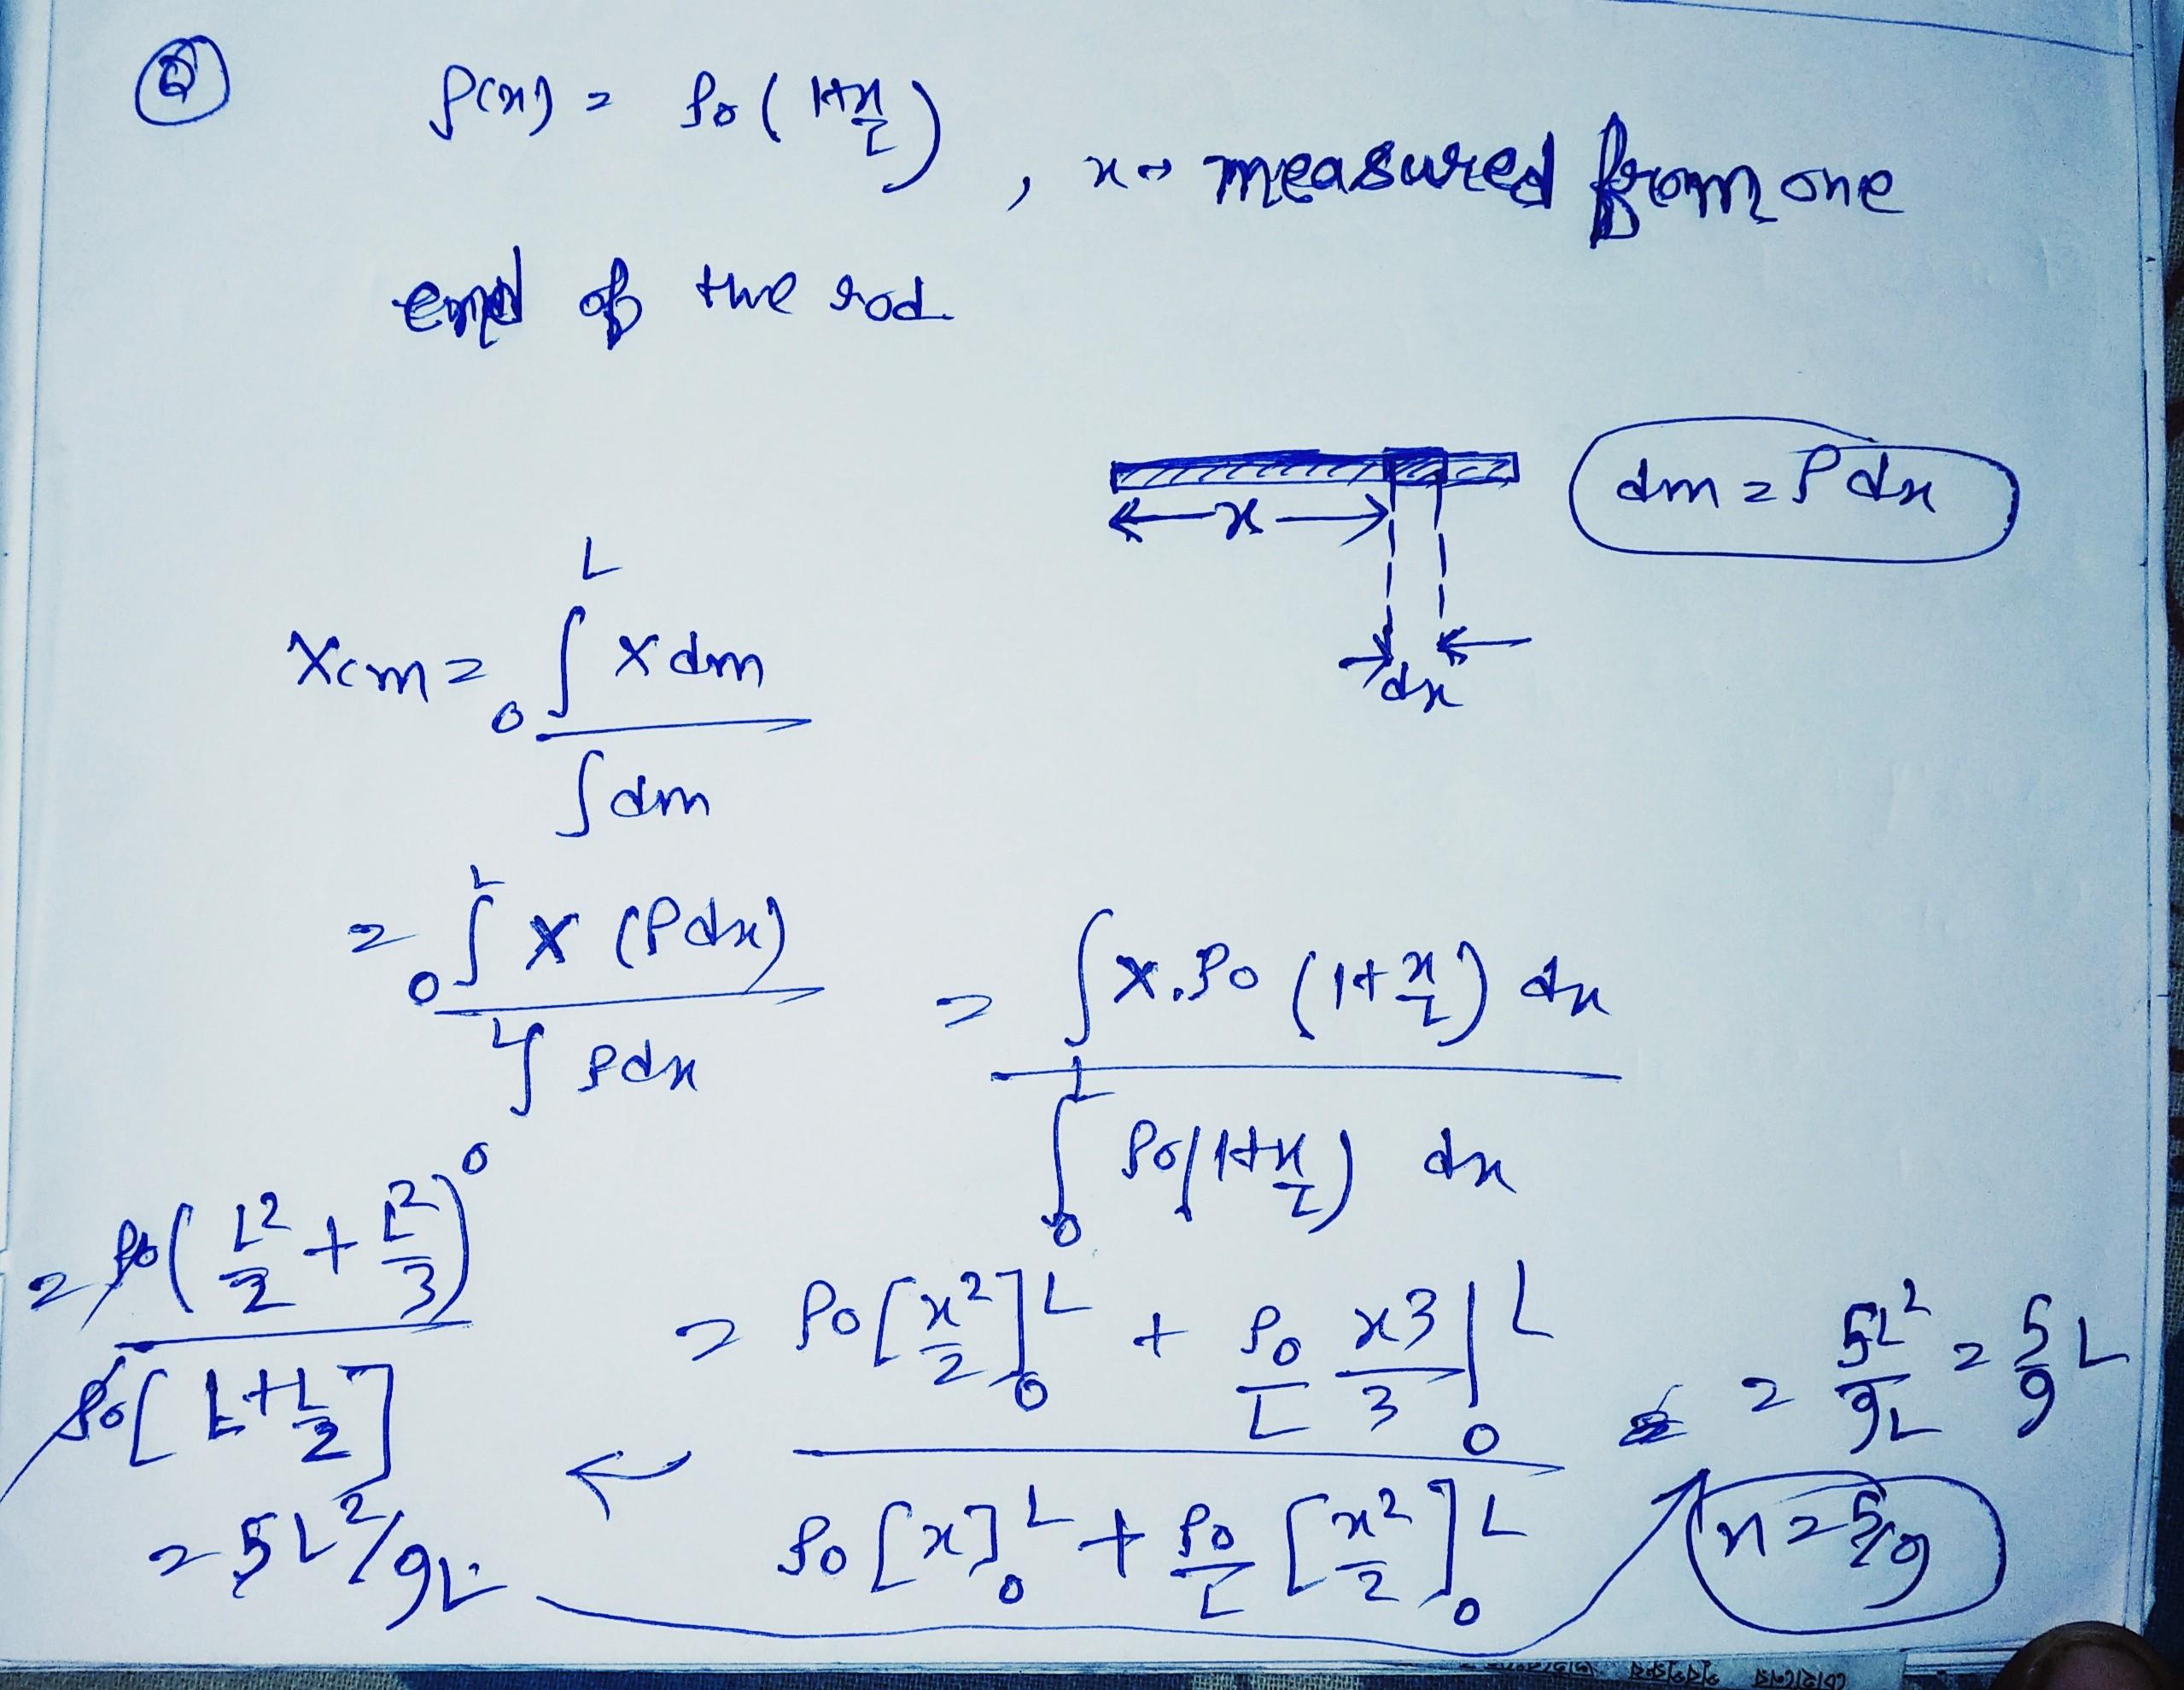 Q
ρ(x) = ρ0 ( 1+x/L ) , x → measured from one
end of the rod
dm = ρ dx
x
dx
Xcm = 0∫L x dm / ∫ dm
= 0∫L x (ρdx) / 0∫L ρdx
= ∫ x.ρ0 (1+x/L) dx / 0∫L ρ0(1+x/L) dx
= ρ0[x²/2]0L + ρ0/L x3/3|0L / ρ0[x]0L + ρ0/L [x²/2]0L
= ρ0( L²/2 + L²/3 ) / ρ0[ L+L/2 ]
= 5L²/9L
= 5L²/9L = 5/9 L
x = 5/9